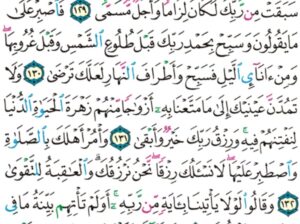 سَبَقَتْ مِن رَّبِّكَ لَكَانَ لِزَامًا وَأَجَلٌ مُّسَمًّى ١٢٩ فَٱصْبِرْ عَلَىٰ
مَا يَقُولُونَ وَسَبِّحْ بِحَمْدِ رَبِّكَ قَبْلَ طُلُوعِ ٱلشَّمْسِ وَقَبْلَ غُرُوبِهَا
وَمِنْ ءَانَآئِ ٱلَّيْلِ فَسَبِّحْ وَأَطْرَافَ ٱلنَّهَارِ لَعَلَّكَ تَرْضَىٰ ١٣٠ وَلَا
تَمُدَّنَّ عَيْنَيْكَ إِلَىٰ مَا مَتَّعْنَا بِهِۦٓ أَزْوَٰجًا مِّنْهُمْ زَهْرَةَ ٱلْحَيَوٰةِ ٱلدُّنْيَا
لِنَفْتِنَهُمْ فِيهِ وَرِزْقُ رَبِّكَ خَيْرٌ وَأَبْقَىٰ ١٣١ وَأْمُرْ أَهْلَكَ بِٱلصَّلَوٰةِ
وَٱصْطَبِرْ عَلَيْهَا لَا نَسْـَٔلُكَ رِزْقًا نَّحْنُ نَرْزُقُكَ وَٱلْعَـٰقِبَةُ لِلتَّقْوَىٰ
١٣٢ وَقَالُوا۟ لَوْلَا يَأْتِينَا بِـَٔايَةٍ مِّن رَّبِّهِۦٓ أَوَلَمْ تَأْتِهِم بَيِّنَةُ مَا فِى